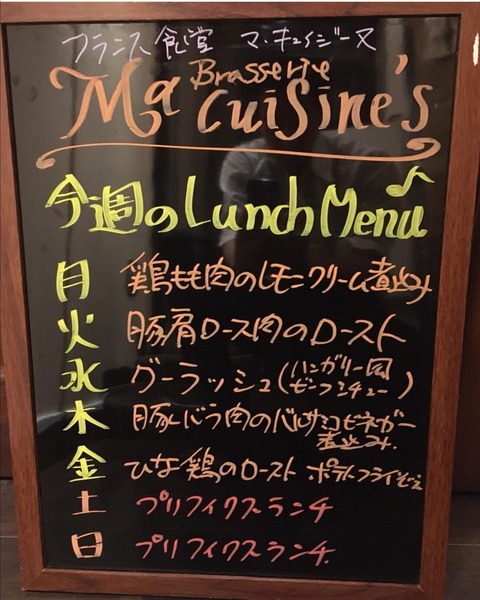 フランス食堂 マ・キュイジーヌ
Brasserie
Ma Cuisine's
今週のLunch Menu♪
月 鶏もも肉のレモンクリーム煮込み
火 豚肩ロース肉のロースト
水 グーラッシュ(ハンガリー風ビーフシチュー)
木 豚バラ肉のバルサミコビネガー煮込み.
金 ひな鶏のロースト ポテトフライ添え
土 プリフィクスランチ
日 プリフィクスランチ.